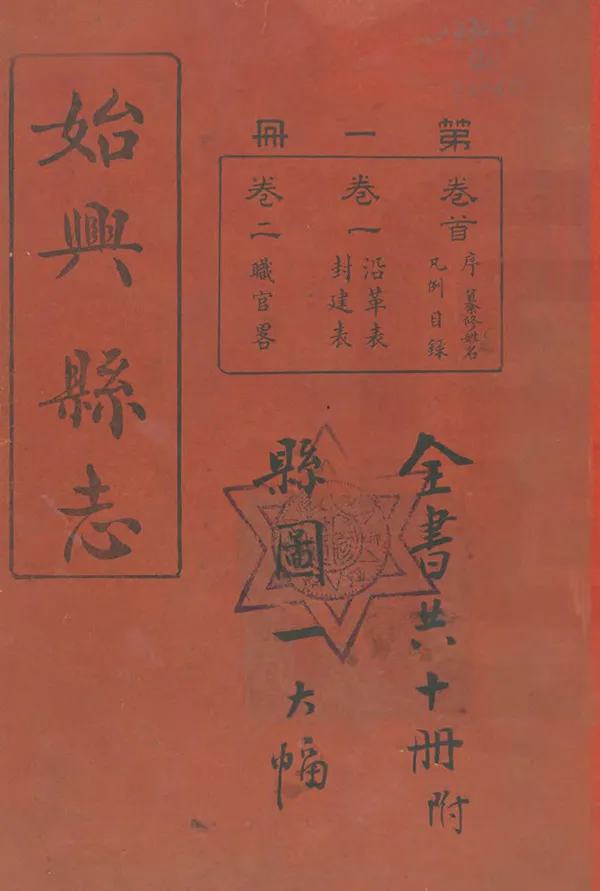 第一冊
卷首
序 纂修姓名
凡例 目錄
卷一
沿革表
封建表
卷二 職官畧
全書共十冊附
縣圖一大幅
始興縣志